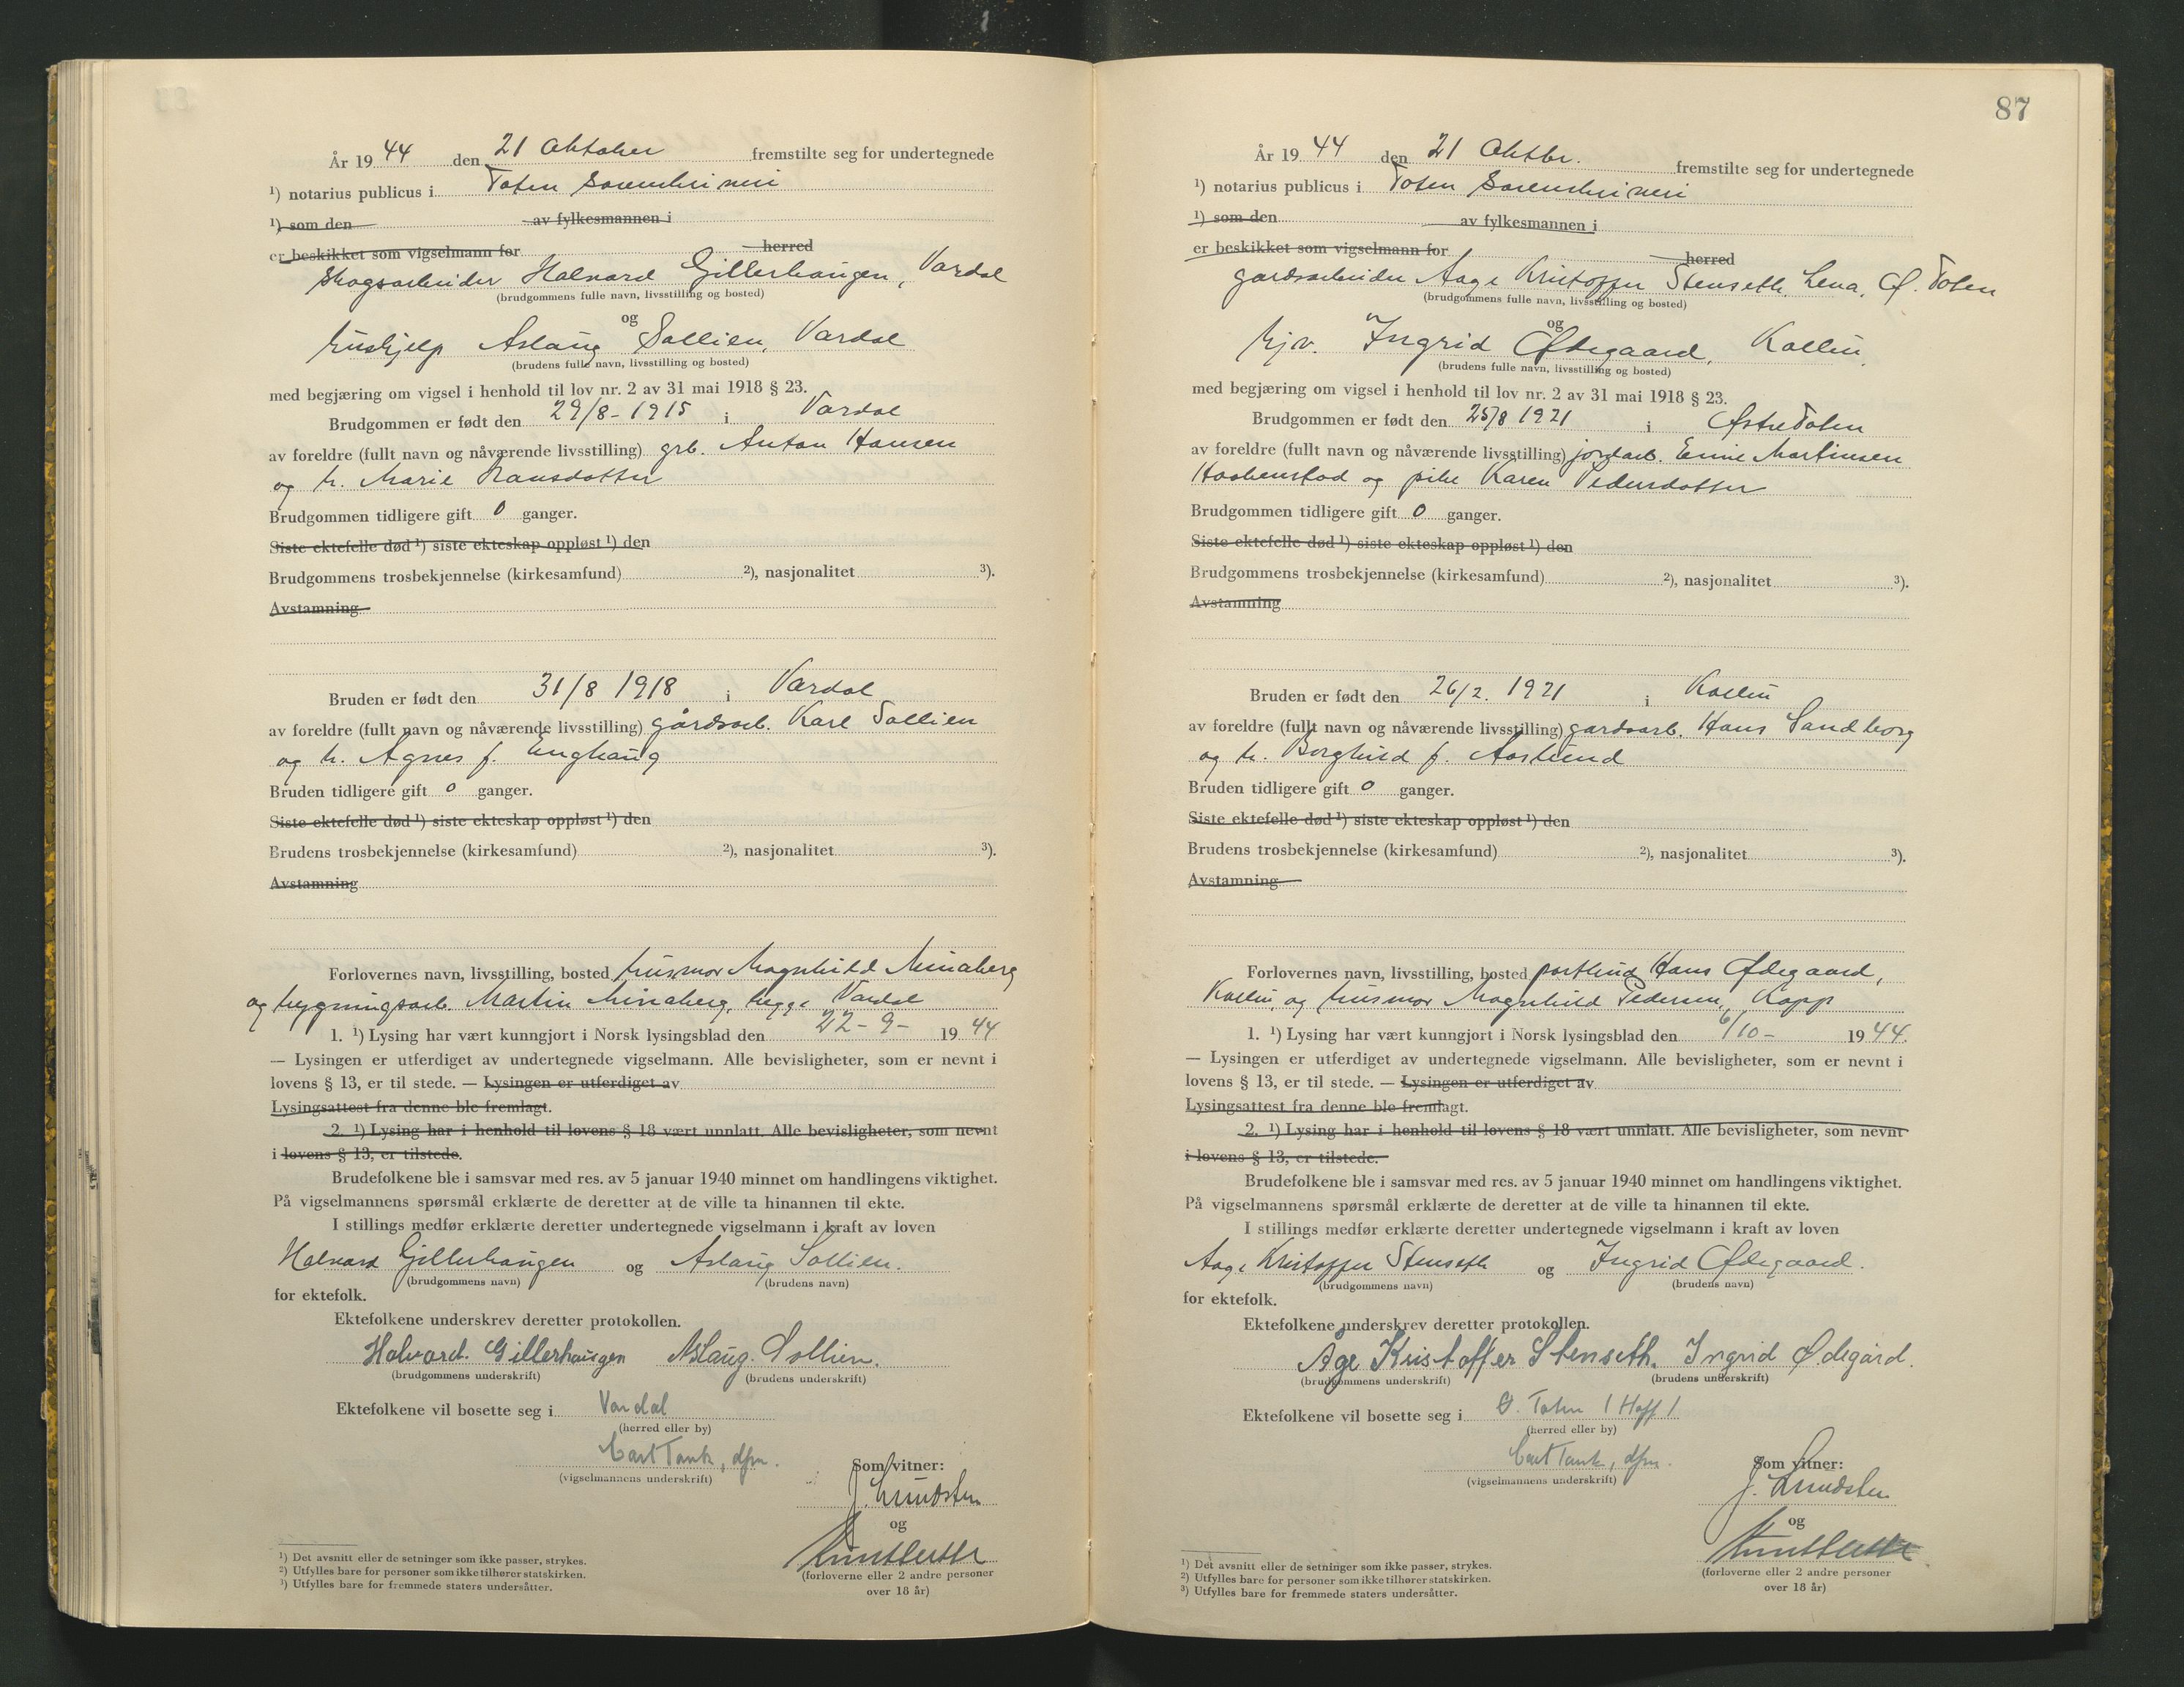 År 19 44 den 21 Oktober fremstilte seg for undertegnede
¹) notarius publicus i Toten Sorenskriveri
¹) som den av fylkesmannen i
er beskikket som vigselmann for herred
skogsarbeider Halvard Gillerhaugen, Vardal
(brudgommens fulle navn, livsstilling og bosted)
og
hushjelp Aslaug Sollien, Vardal
(brudens fulle navn, livsstilling og bosted)
med begjæring om vigsel i henhold til lov nr. 2 av 31 mai 1918 § 23.
Brudgommen er født den 29/8 - 1915 i Vardal
av foreldre (fullt navn og nåværende livsstilling) grb. Anton Hansen
og h. Marie Hansdatter
Brudgommen tidligere gift 0 ganger.
Siste ektefelle død ¹) siste ekteskap oppløst ¹) den
Brudgommens trosbekjennelse (kirkesamfund) ²), nasjonalitet ³).
Avstamning
Bruden er født den 31/8 1918 i Vardal
av foreldre (fullt navn og nåværende livsstilling) gårdsarb. Karl Sollien
og h. Agnes f. Enghaug
Bruden tidligere gift 0 ganger.
Siste ektefelle død ¹) siste ekteskap oppløst ¹) den
Brudens trosbekjennelse (kirkesamfund) ²), nasjonalitet ³).
Avstamning
Forlovernes navn, livsstilling, bosted husmor Magnhild
og bygningsarb. Martin Vardal
1. ¹) Lysing har vært kunngjort i Norsk lysingsblad den 22 - 9 - 19 44
— Lysingen er utferdiget av undertegnede vigselmann. Alle bevisligheter, som er nevnt i
lovens § 13, er til stede. — Lysingen er utferdiget av
Lysingsattest fra denne ble fremlagt.
2. ¹) Lysing har i henhold til lovens § 18 vært unnlatt. Alle bevisligheter, som nevnt
i lovens § 13, er tilstede.
Brudefolkene ble i samsvar med res. av 5 januar 1940 minnet om handlingens viktighet.
På vigselmannens spørsmål erklærte de deretter at de ville ta hinannen til ekte.
I stillings medfør erklærte deretter undertegnede vigselmann i kraft av loven
Halvard Gillerhaugen og Aslaug Sollien.
(brudgommens navn) (brudens navn)
for ektefolk.
Ektefolkene underskrev deretter protokollen.
Halvard Gillerhaugen Aslaug Sollien.
(brudgommens underskrift) (brudens underskrift)
Ektefolkene vil bosette seg i Vardal
(herred eller by)
Carl Tank, dfm.
(vigselmannens underskrift)
Som vitner:
J. Lundsten
og
(forloverne eller 2 andre personer
over 18 år)
¹) Det avsnitt eller de setninger som ikke passer, strykes.
²) Utfylles bare for personer som ikke tilhører statskirken.
³) Utfylles bare for fremmede staters undersåtter.
87
År 19 44 den 21 Oktbr. fremstilte seg for undertegnede
¹) notarius publicus i Toten Sorenskriveri
¹) som den av fylkesmannen i
er beskikket som vigselmann for herred
gardsarbeider Aage Kristoffer Stenseth, Lena, Ø. Toten
(brudgommens fulle navn, livsstilling og bosted)
og
hjv. Ingrid Ødegaard, Kolbu.
(brudens fulle navn, livsstilling og bosted)
med begjæring om vigsel i henhold til lov nr. 2 av 31 mai 1918 § 23.
Brudgommen er født den 25/8 1921 i Østre Toten
av foreldre (fullt navn og nåværende livsstilling) jordarb. Martinsen
Haakenstad og pike Karen Pedersdatter
Brudgommen tidligere gift 0 ganger.
Siste ektefelle død ¹) siste ekteskap oppløst ¹) den
Brudgommens trosbekjennelse (kirkesamfund) ²), nasjonalitet ³).
Avstamning
Bruden er født den 26/2. 1921 i Kolbu
av foreldre (fullt navn og nåværende livsstilling) gardsarb. Hans Sandborg
og h. Borghild f. Aaslund
Bruden tidligere gift 0 ganger.
Siste ektefelle død ¹) siste ekteskap oppløst ¹) den
Brudens trosbekjennelse (kirkesamfund) ²), nasjonalitet ³).
Avstamning
Forlovernes navn, livsstilling, bosted postbud Hans Ødegaard,
Kolbu, og husmor Magnhild Pedersen, Kapp
1. ¹) Lysing har vært kunngjort i Norsk lysingsblad den 6/10 - 19 44.
— Lysingen er utferdiget av undertegnede vigselmann. Alle bevisligheter, som er nevnt i
lovens § 13, er til stede. — Lysingen er utferdiget av
Lysingsattest fra denne ble fremlagt.
2. ¹) Lysing har i henhold til lovens § 18 vært unnlatt. Alle bevisligheter, som nevnt
i lovens § 13, er tilstede.
Brudefolkene ble i samsvar med res. av 5 januar 1940 minnet om handlingens viktighet.
På vigselmannens spørsmål erklærte de deretter at de ville ta hinannen til ekte.
I stillings medfør erklærte deretter undertegnede vigselmann i kraft av loven
Aage Kristoffer Stenseth og Ingrid Ødegaard.
(brudgommens navn) (brudens navn)
for ektefolk.
Ektefolkene underskrev deretter protokollen.
Åge Kristoffer Stenseth. Ingrid Ødegård.
(brudgommens underskrift) (brudens underskrift)
Ektefolkene vil bosette seg i Ø. Toten / Hoff /
(herred eller by)
Carl Tank, dfm.
(vigselmannens underskrift)
Som vitner:
J. Lundsten
og
(forloverne eller 2 andre personer
over 18 år)
¹) Det avsnitt eller de setninger som ikke passer, strykes.
²) Utfylles bare for personer som ikke tilhører statskirken.
³) Utfylles bare for fremmede staters undersåtter.